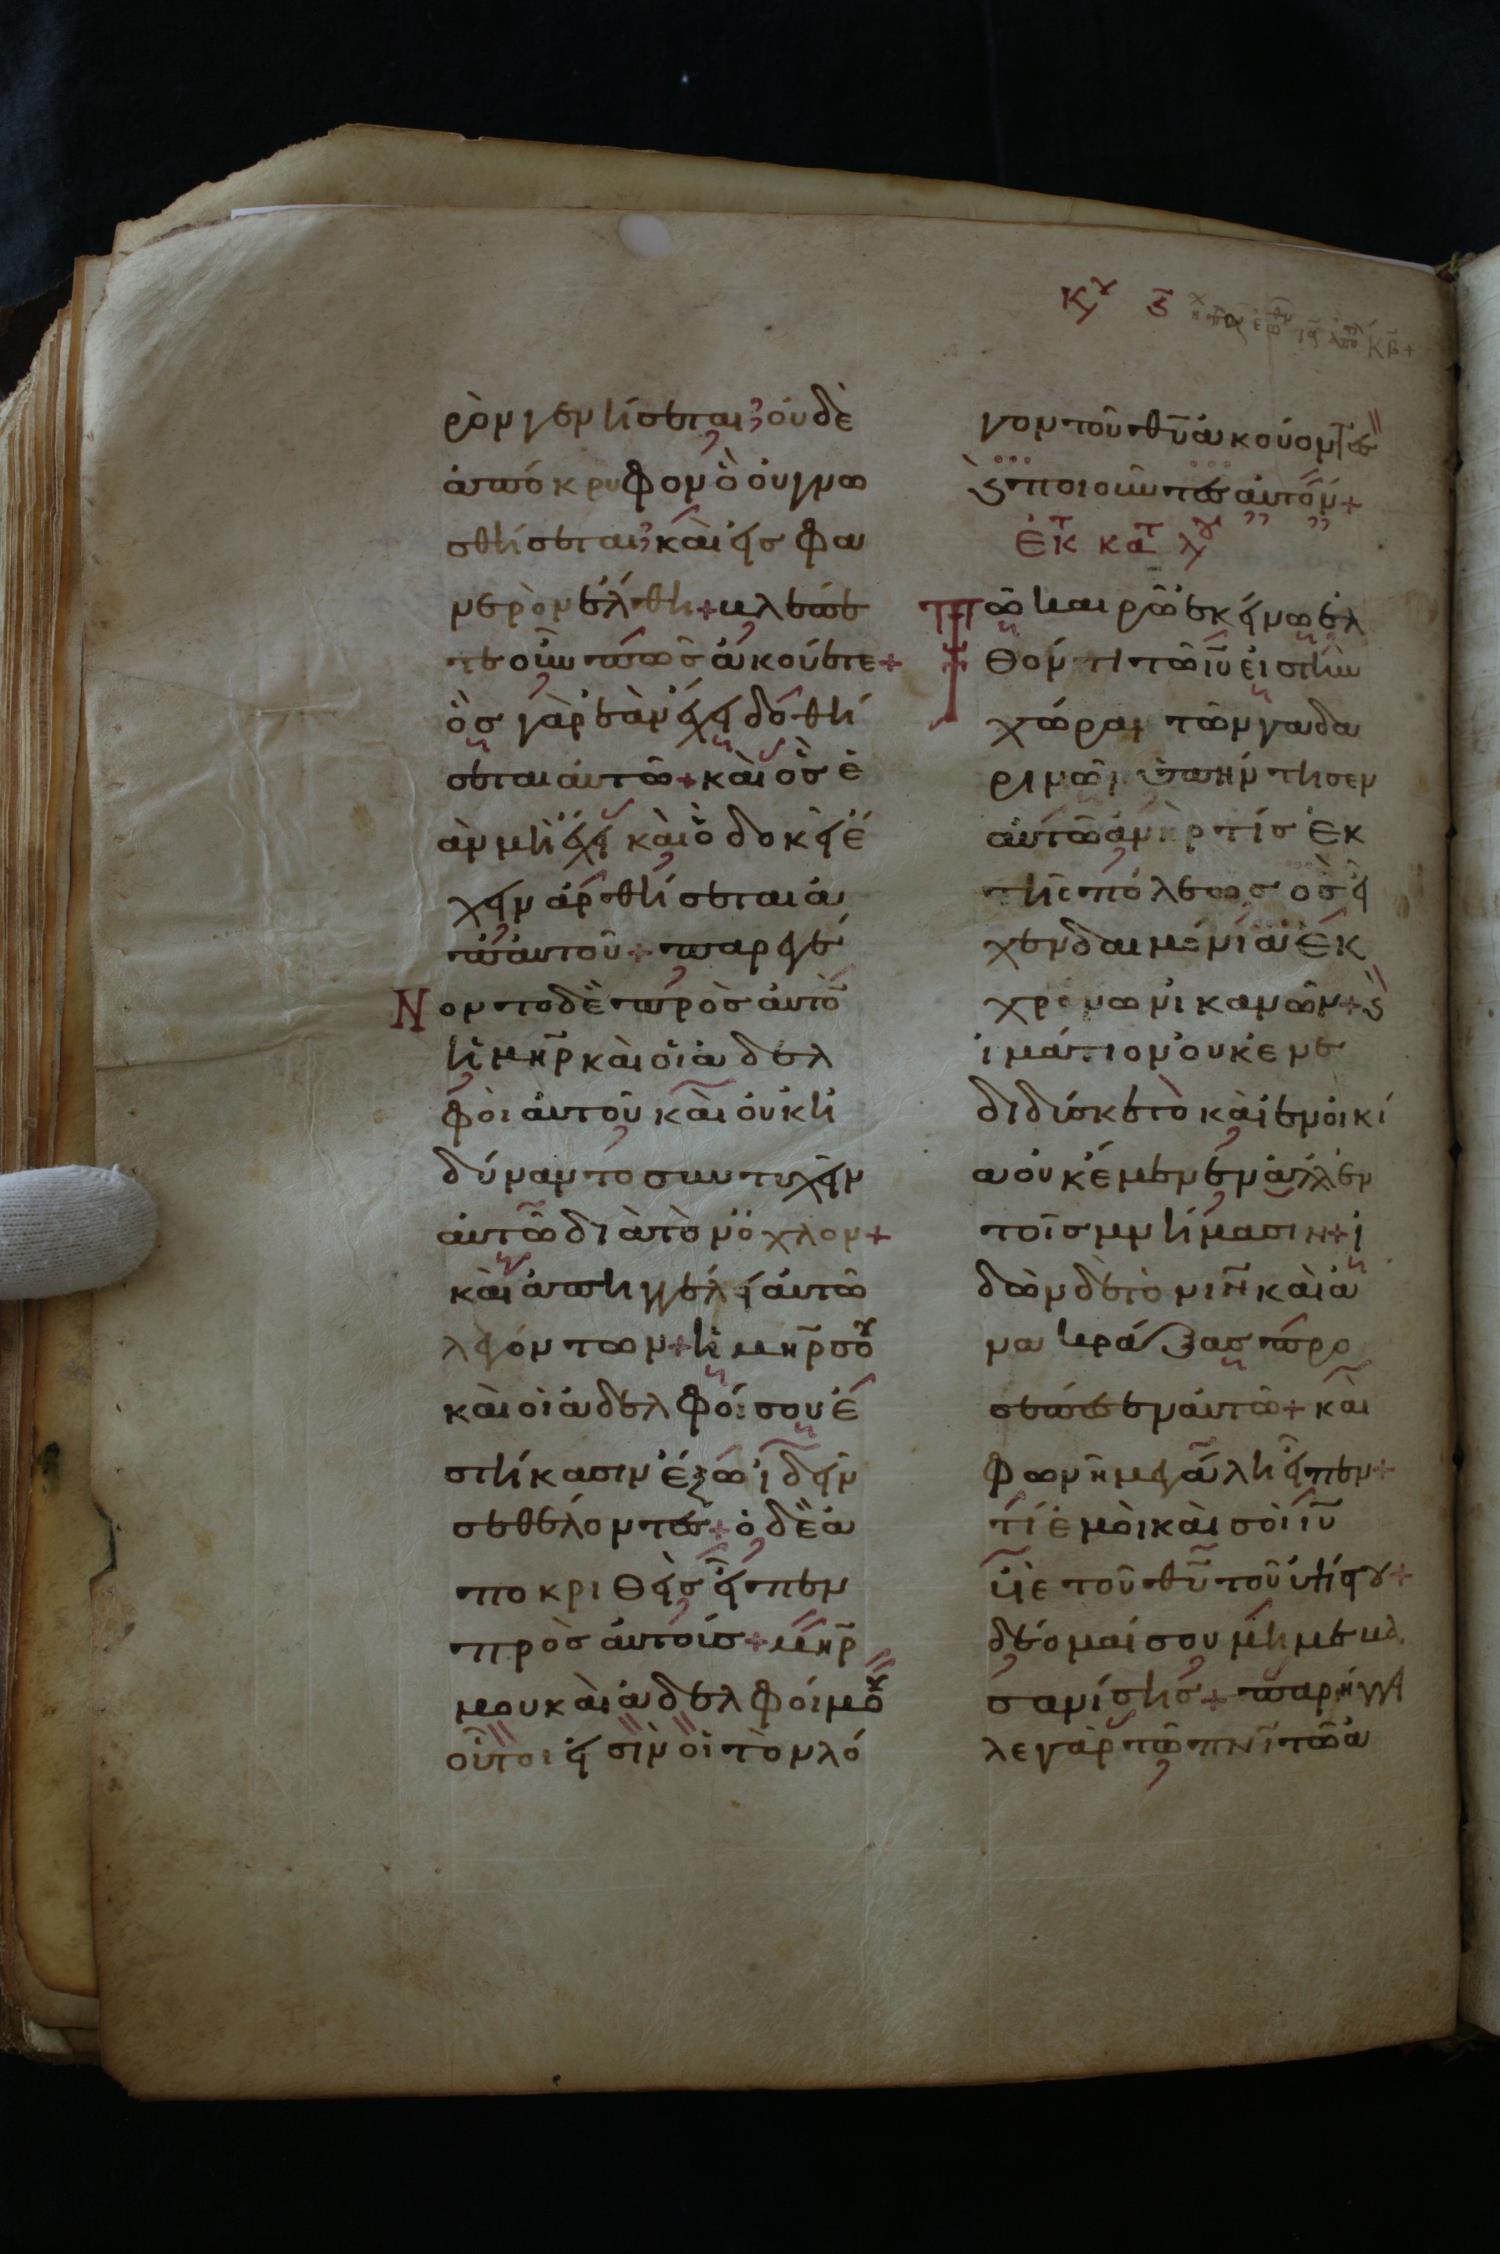 Κυ ς
ρὸν γενήσεται· οὐδὲ
ἀπόκρυφον ὃ οὐ γνω
σθήσεται· καὶ εἰς φα
νερὸν ἔλθη + βλέπε
τε οὖν πῶς ἀκούετε +
ὃς γὰρ ἐὰν ἔχει δοθή
σεται αὐτῶ + καὶ ὃς ἐ
ὰν μὴ ἔχει καὶ ὃ δοκεῖ ἔ
χειν ἀρθήσεται ἀ
π' αὐτοῦ + παρεγέ
Νοντο δὲ πρὸς αὐτὸ
ἡ μηρ καὶ οἱ ἀδελ
φοὶ αὐτοῦ καὶ οὐκ ἠ
δύναντο συντυχεῖν
αὐτῶ διὰ τὸν ὄχλον +
καὶ ἀπηγγέλει αὐτῶ
λεγόντων + ἡ μηρ σου
καὶ οἱ ἀδελφοί σου ἑ
στήκασιν ἔξω ἰδεῖν
σε θέλοντες + ὁ δὲ ἀ
ποκριθεὶς εἶπεν
πρὸς αὐτούς + μηρ
μου καὶ ἀδελφοί μου
οὗτοι εἰσὶν οἱ τὸν λό
γον τοῦ θυ ἀκούοντες
καὶ ποιοῦντες αὐτόν +
ἐκ κατ λου
Τῶ καιρῶ ἐκείνω ἐλ
θόντι τῶ ιυ εἰς τὴν
χώραν τῶν γαδα
ρινῶν ὑπήντησεν
αὐτῶ ἀνήρ τις ἐκ
τῆς πόλεως ὃς εἶ
χεν δαιμόνια ἐκ
χρόνων ἱκανῶν + καὶ
ἱμάτιον οὐκ ἐνε
διδύσκετο καὶ ἐν οἰκί
α οὐκ ἔμενεν ἀλλ' ἐν
τοῖς μνήμασιν + ἰ
δὼν δὲ τὸν ιν καὶ ἀ
νακράξας προ
σέπεσεν αὐτῶ + καὶ
φωνῆ μεγάλη εἶπεν +
τί ἐμοὶ καὶ σοὶ ιυ
υἱὲ τοῦ θυ τοῦ ὑψίστου +
δέομαί σου μή με βα
σανίσης + παρήγγελ
λε γὰρ τῶ πνι τῶ ἀ